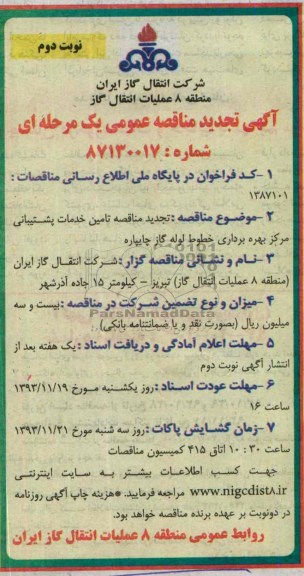 نوبت دوم
شرکت انتقال گاز ایران
منطقه ۸ عملیات انتقال گاز
آگهی تجدید مناقصه عمومی یک مرحله ای
شماره : ۸۷۱۳۰۰۱۷
۱ -کـد فراخوان در پایگاه ملی اطلاع رسـانی مناقصات :
۱۳۸۷۱۰۱
۲ -موضـوع مناقصه :تجدید مناقصه تامین خدمات پشـتیبانی
مرکز بهره برداری خطوط لوله گاز چایپاره
۳ -نـام و نشـانی مناقصه گزار :شـرکت انتقـال گاز ایران
(منطقه ۸ عملیات انتقال گاز) تبریز – کیلومتر ۱۵ جاده آذرشهر
۴ -میزان و نوع تضمین شـرکت در مناقصه :بیست و سه
میلیون ریال (بصورت نقد و یا ضمانتنامه بانکی)
ParsNamadData
۵ -مهلت اعلام آمادگی و دریافت اسناد :یک هفته بعد از
انتشار آگهی نوبت دوم
۶ -مهلت عودت اسـناد :روز یکشـنبه مـورخ ۱۳۹۳/۱۱/۱۹
ساعت ۱۶
۷ -زمان گشـایش پاکات :روز سه شنبه مورخ ۱۳۹۳/۱۱/۲۱
ساعت ۳۰ : ۱۰ اتاق ۴۱۵ کمیسیون مناقصات
جهـت کسـب اطلاعـات بیشـتر بـه سـایت اینترنتـی
www.nigcdist8.ir مراجعه فرمایید. *هزینه چاپ آگهی روزنامه
در دونوبت بر عهده برنده مناقصه خواهد بود.
روابط عمومی منطقه ۸ عملیات انتقال گاز ایران